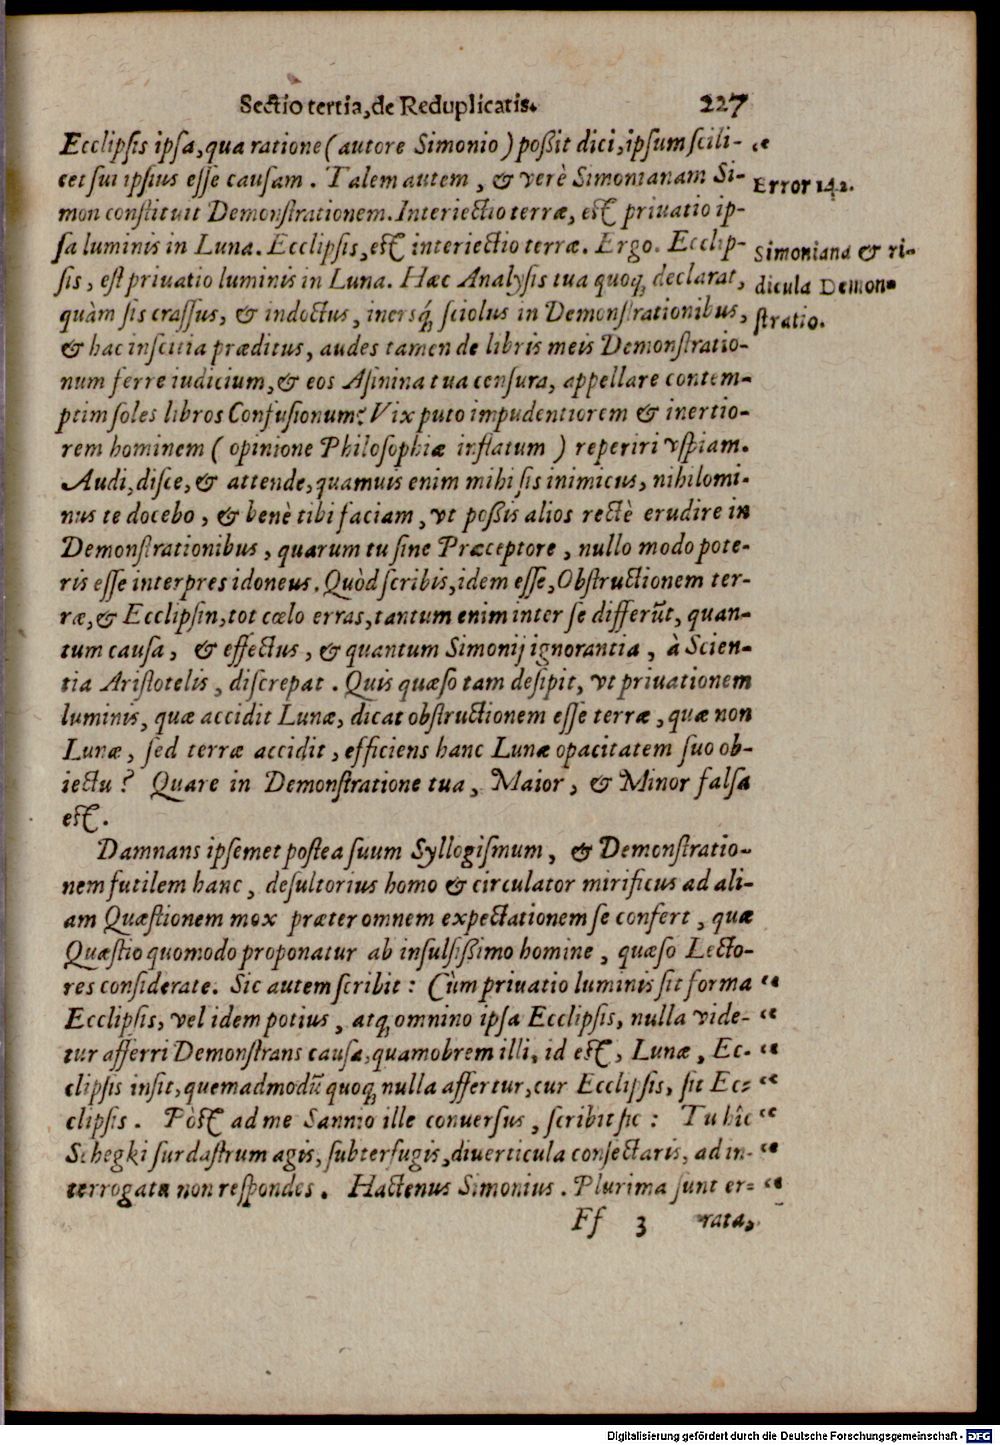 Sectio tertia, de Reduplicatis. 227
Ecclipsis ipsa, qua ratione (autore Simonio) poßit dici, ipsum scili- “
cet sui ipsius esse causam. Talem autem, & verè Simonianam Si- Error 142.
mon constituit Demonstrationem. Interiectio terræ, est priuatio ip-
sa luminis in Luna. Ecclipsis, est interiectio terræ. Ergo. Ecclip- Simoniana & ri-
sis, est priuatio luminis in Luna. Hæc Analysis tua quoq; declarat, dicula Demon-
quàm sis crassus, & indoctus, inersq́; sciolus in Demonstrationibus, stratio.
& hac inscitia præditus, audes tamen de libris meis Demonstratio-
num ferre iudicium, & eos Asinina tua censura, appellare contem-
ptim soles libros Confusionum? Vix puto impudentiorem & inertio-
rem hominem (opinione Philosophiæ inflatum) reperiri vspiam.
Audi, disce, & attende, quamuis enim mihi sis inimicus, nihilomi-
nus te docebo, & benè tibi faciam, vt poßis alios rectè erudire in
Demonstrationibus, quarum tu sine Præceptore, nullo modo pote-
ris esse interpres idoneus. Quòd scribis, idem esse, Obstructionem ter-
ræ, & Ecclipsin, tot cœlo erras, tantum enim inter se differũt, quan-
tum causa, & effectus, & quantum Simonij ignorantia, à Scien-
tia Aristotelis, discrepat. Quis quæso tam desipit, vt priuationem
luminis, quæ accidit Lunæ, dicat obstructionem esse terræ, quæ non
Lunæ, sed terræ accidit, efficiens hanc Lunæ opacitatem suo ob-
iectu? Quare in Demonstratione tua, Maior, & Minor falsa
est.
Damnans ipsemet postea suum Syllogismum, & Demonstratio-
nem futilem hanc, desultorius homo & circulator mirificus ad ali-
am Quæstionem mox præter omnem expectationem se confert, quæ
Quæstio quomodo proponatur ab insulsißimo homine, quæso Lecto-
res considerate. Sic autem scribit: Cùm priuatio luminis sit forma “
Ecclipsis, vel idem potius, atq; omnino ipsa Ecclipsis, nulla vide- “
tur afferri Demonstrans causa, quamobrem illi, id est, Lunæ, Ec- “
clipsis insit, quemadmodũ quoq; nulla affertur, cur Ecclipsis, sit Ec- “
clipsis. Pòst ad me Sannio ille conuersus, scribit sic: Tu hîc “
Schegki surdastrum agis, subterfugis, diuerticula consectaris, ad in- “
terrogata non respondes. Hactenus Simonius. Plurima sunt er- “
Ff 3 rata,
Digitalisierung gefördert durch die Deutsche Forschungsgemeinschaft - DFG